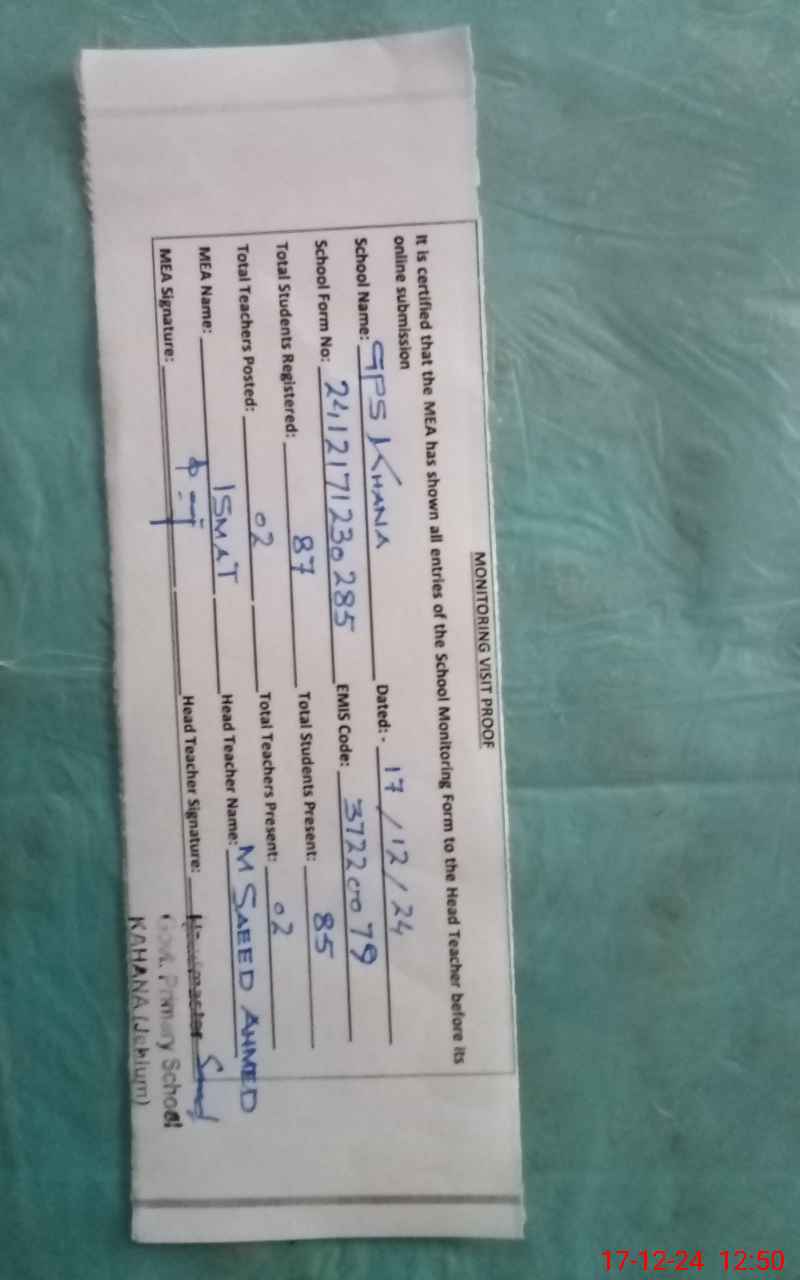 MONITORING VISIT PROOF
It is certified that the MEA has shown all entries of the School Monitoring Form to the Head Teacher before its
online submission
School Name: GPS KHANA Dated: - 17/12/24
School Form No: 2412171230285 EMIS Code: 37220079
Total Students Registered: 87 Total Students Present: 85
Total Teachers Posted: 02 Total Teachers Present: 02
MEA Name: ISMAT Head Teacher Name: M SAEED AHMED
MEA Signature: Head Teacher Signature:
Headmaster
Govt. Primary School
KAHANA (Jehlum)
17-12-24 12:50